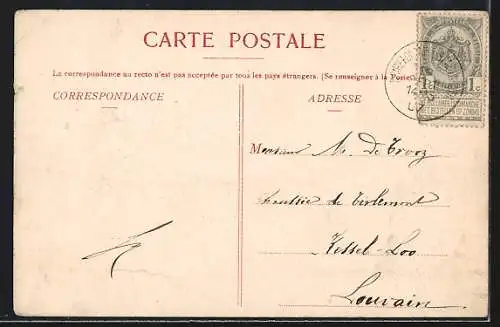 CARTE POSTALE
La correspondance au recto n'est pas acceptée par tous les pays étrangers. (Se renseigner à la Poste
CORRESPONDANCE
ADRESSE
1c 1c
Monsieur M. De Trooz
Chaussée de Tirlemont
Kessel-Loo
Louvain